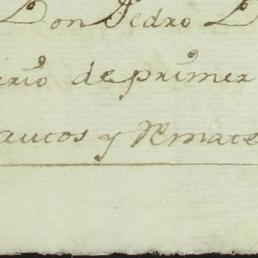 Don Pedro
erio de primer
autos y Remate